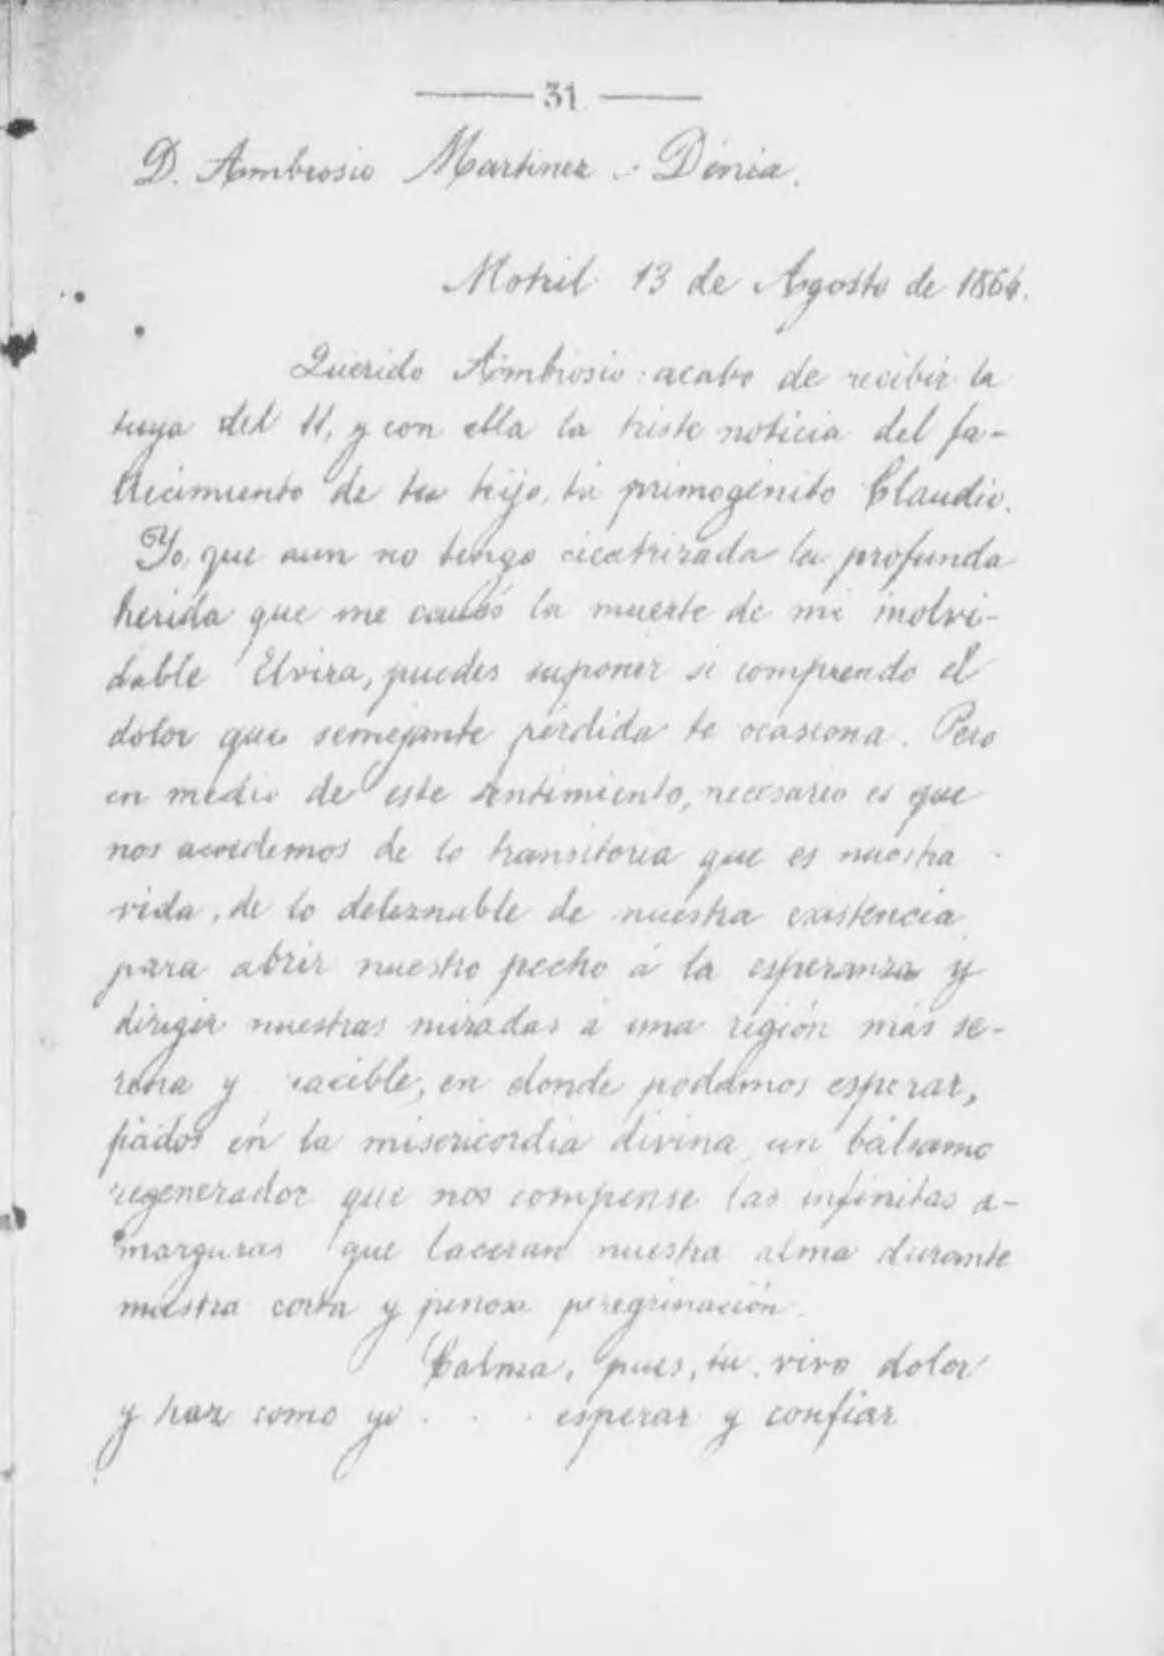 31
D. Ambrosio Martinez - Dénia.
Motril 13 de Agosto de 1864.
Querido Ambrosio: acabo de recibir la
tuya del 11, y con ella la triste noticia del fa-
llecimiento de tu hijo, tu primogénito Claudio.
Yo, que aun no tengo cicatrizada la profunda
herida que me causó la muerte de mi inolvi-
dable Elvira, puedes suponer si comprendo el
dolor que semejante pérdida te ocasiona. Pero
en medio de este sentimiento, necesario es que
nos acordemos de lo transitoria que es nuestra
vida, de lo deleznable de nuestra existencia
para abrir nuestro pecho á la esperanza y
dirigir nuestras miradas á una región más se-
rena y sacible, en donde podamos esperar,
fiados en la misericordia divina, un bálsamo
regenerador que nos compense las infinitas a-
marguras que laceran nuestra alma durante
nuestra corta y penosa peregrinación.
Calma, pues, tu vivo dolor
y haz como yo . . . esperar y confiar